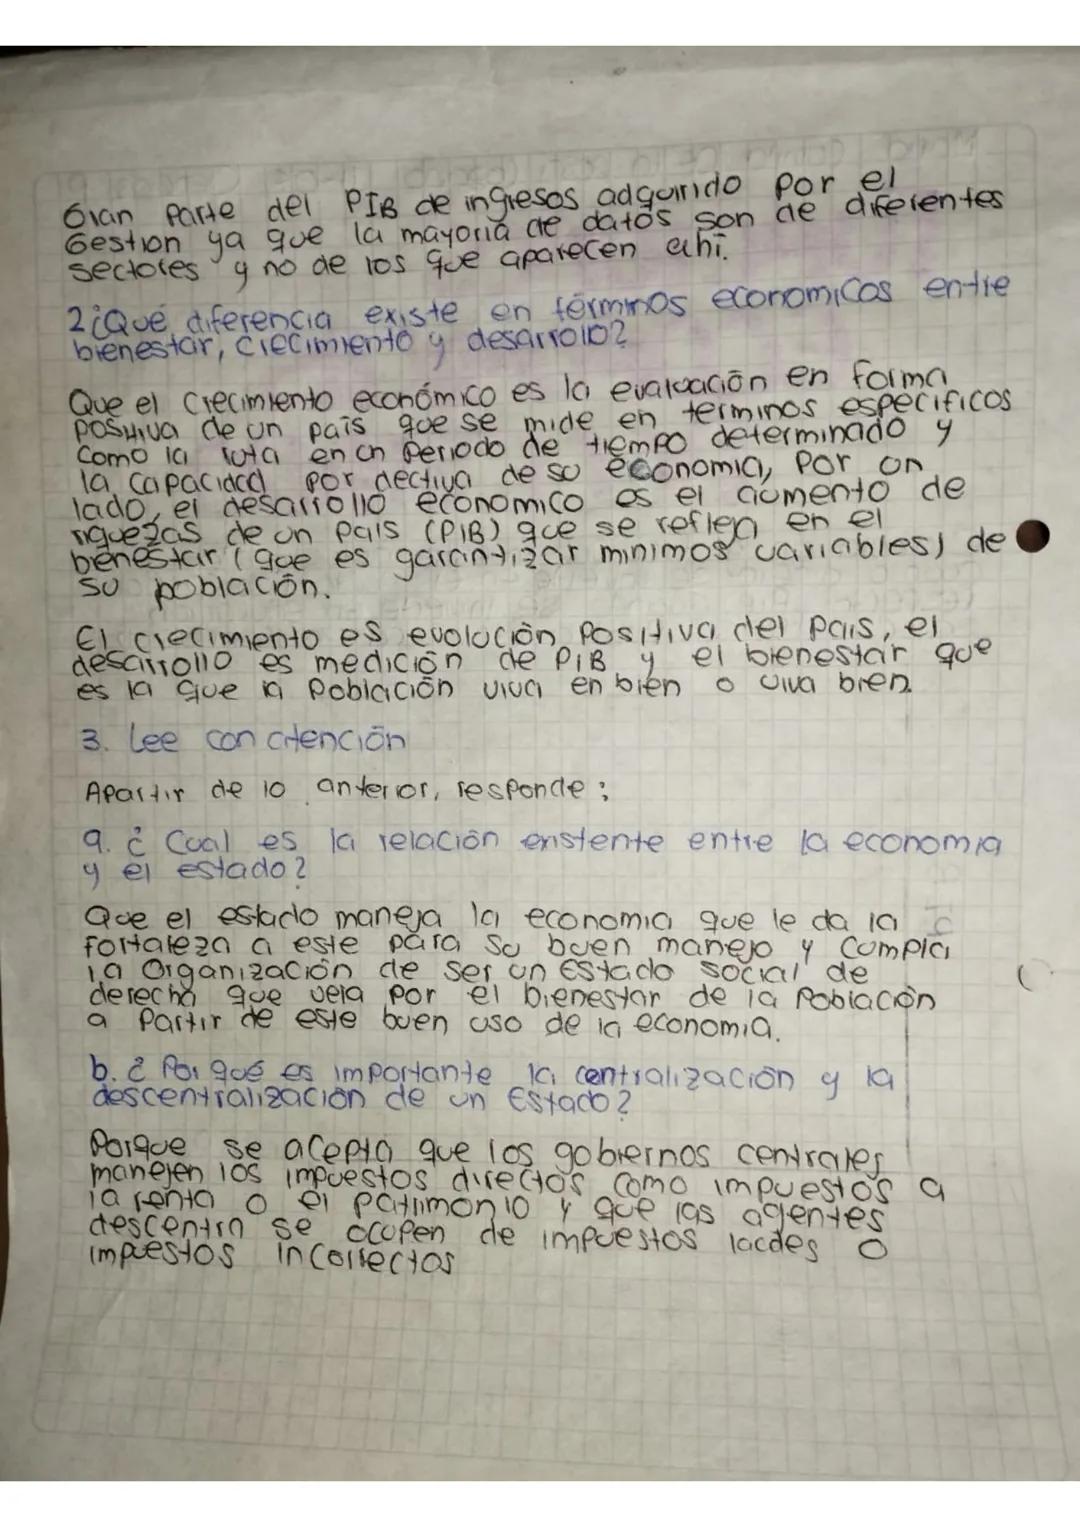 Gran parte del PIB de ingresos adquirido por el
Gestion ya que la mayoria de datos son de diferentes
sectores y no de los que aparecen ahi.
2¿Qué diferencia existe en términos economicos entre
bienestar, crecimiento y desarrollo?
Que el crecimiento económico es la evaluación en forma
positiva de un país que se mide en terminos especificos
como la ruta en un periodo de tiempo determinado y
la capacidad por dectiva de su economia, por un
lado, el desarrollo economico es el aumento de
riquezas de un pais (PIB) que se reflega en el
bienestar (que es garantizar minimos variables) de
su población.
El crecimiento es evolución positiva del pais, el
desarrollo es medición de PIB y el bienestar que
es la que la población viva en bien o viva bien.
3. Lee con atención
Apartir de lo anterior, responde:
a. ¿Cual es la relación existente entre la economia
y el estado?
Que el estado maneja la economia que le da la
fortaleza a este para su buen manejo y cumpla
la Organización de ser un Estado social de
derecho que vela por el bienestar de la población
a partir de este buen uso de la economia.
b. ¿Por qué es importante la centralización y la
descentralización de un Estado?
Porque se acepta que los gobiernos centrales
manejen los impuestos directos como impuestos a
la renta o el patrimonio y que las agentes
descentra se ocupen de impuestos locales o
impuestos incorrectos